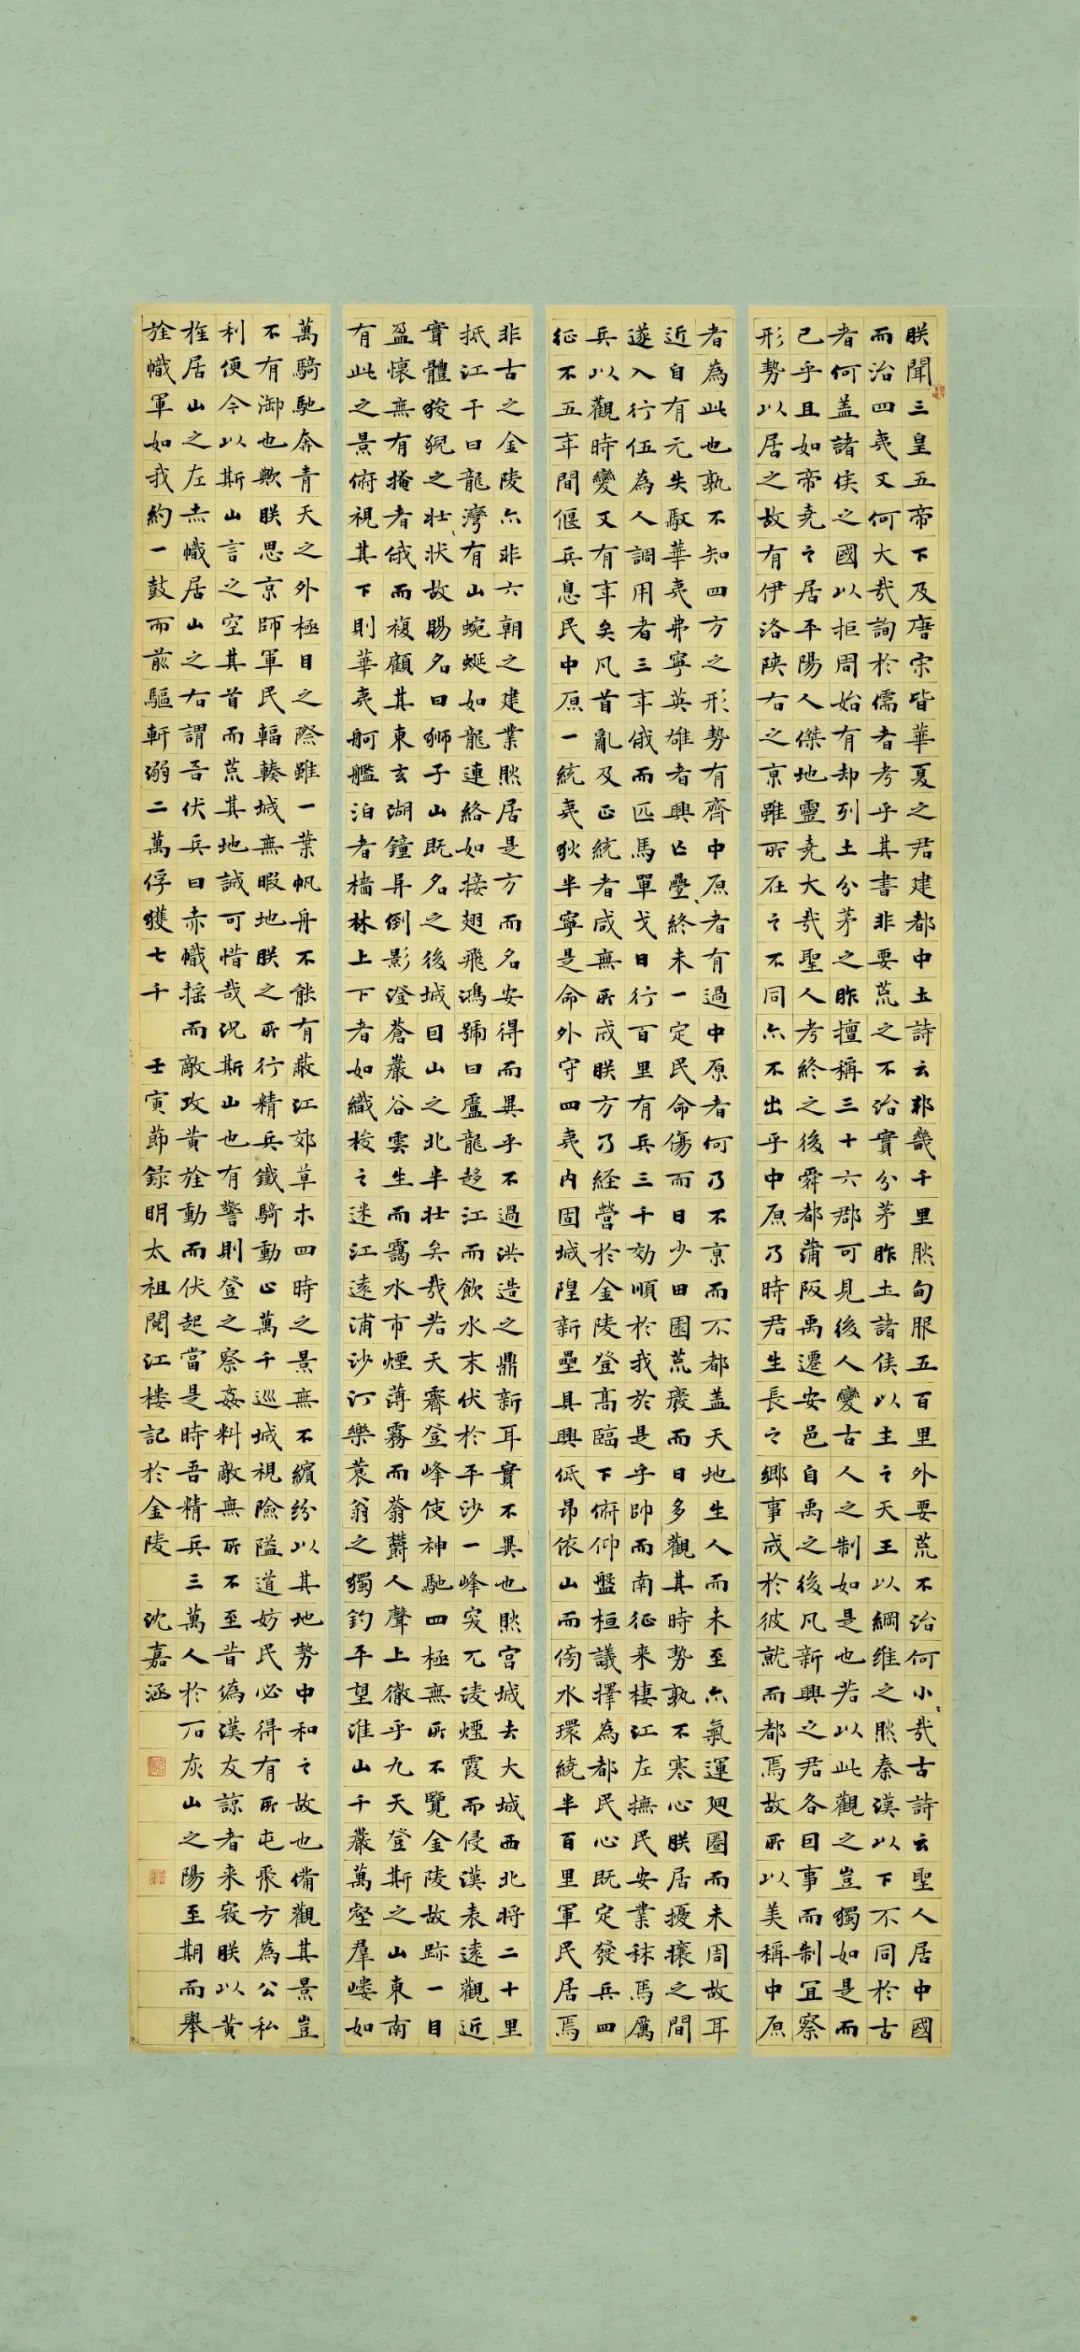 朕聞三皇五帝下及唐宋皆華夏之君建都中土詩云邦畿千里然甸服五百里外要荒不治何小哉古詩云聖人居中國
而治四夷又何大哉詢於儒者考乎其書非要荒之不治實分茅胙土諸侯以主之天王以綱維之然秦漢以下不同於古
者何蓋諸侯之國以拒周始有却列土分茅之胙擅稱三十六郡可見後人變古人之制如是也若以此觀之豈獨如是而
已乎且如帝堯之居平陽人傑地靈堯大哉聖人考終之後舜都蒲阪禹遷安邑自禹之後凡新興之君各因事而制宜察
形勢以居之故有伊洛陝右之京雖所在之不同亦不出乎中原乃時君生長之鄉事成於彼就而都焉故所以美稱中原
者為此也孰不知四方之形勢有齊中原者有過中原者何乃不京而不都蓋天地生人而未至亦氣運廻圈而未周故耳
近自有元失馭華夷弗寧英雄者興亡疊、終未一定民命傷而日少田園荒廢而日多觀其時勢孰不寒心朕居擾攘之間
遂入行伍為人調用者三年俄而匹馬單戈日行百里有兵三千効順於我於是乎帥而南征来棲江左撫民安業秣馬厲
兵以觀時變又有年矣凡首亂及正統者咸無所成朕方乃経營於金陵登高臨下俯仰盤桓議擇為都民心既定發兵四
征不五年間偃兵息民中原一統夷狄半寧是命外守四夷内固城隍新壘具興低昂依山而傍水環繞半百里軍民居焉
非古之金陵亦非六朝之建業然居是方而名安得而異乎不過洪造之鼎新耳實不異也然宮城去大城西北将二十里
抵江干曰龍灣有山蜿蜒如龍連絡如接翅飛鴻號曰盧龍趍江而飲水末伏於平沙一峰突兀淩煙霞而侵漢表遠觀近
實體狻猊之壯狀故賜名曰獅子山既名之後城因山之北半壯矣哉若天霽登峰使神馳四極無所不覽金陵故跡一目
盈懷無有掩者俄而複顧其東玄湖鐘阜倒影澄蒼巖谷雲生而靄水市煙薄霧而蓊鬱人聲上徹乎九天登斯之山東南
有此之景俯視其下則華夷舸艦泊者檣林上下者如織梭之迷江遠浦沙汀樂蓑翁之獨釣平望淮山千巖萬壑羣嶁如
萬騎馳奔青天之外極目之際雖一葉帆舟不能有蔽江郊草木四時之景無不繽紛以其地勢中和之故也備觀其景豈
不有御也歟朕思京師軍民輻輳城無暇地朕之所行精兵鐵騎動止萬千巡城視險隘道妨民必得有所屯聚方為公私
利便今以斯山言之空其首而荒其地誠可惜哉況斯山也有警則登之察姦料敵無所不至昔偽漢友諒者来寇朕以黃
旌居山之左赤幟居山之右謂吾伏兵曰赤幟揺而敵攻黃旌動而伏起當是時吾精兵三萬人於石灰山之陽至期而舉
旌幟軍如我約一鼓而前驅斬溺二萬俘獲七千 壬寅節録明太祖閱江樓記於金陵 沈嘉涵